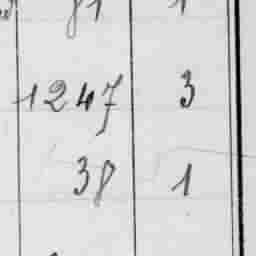 1247 3
38 1